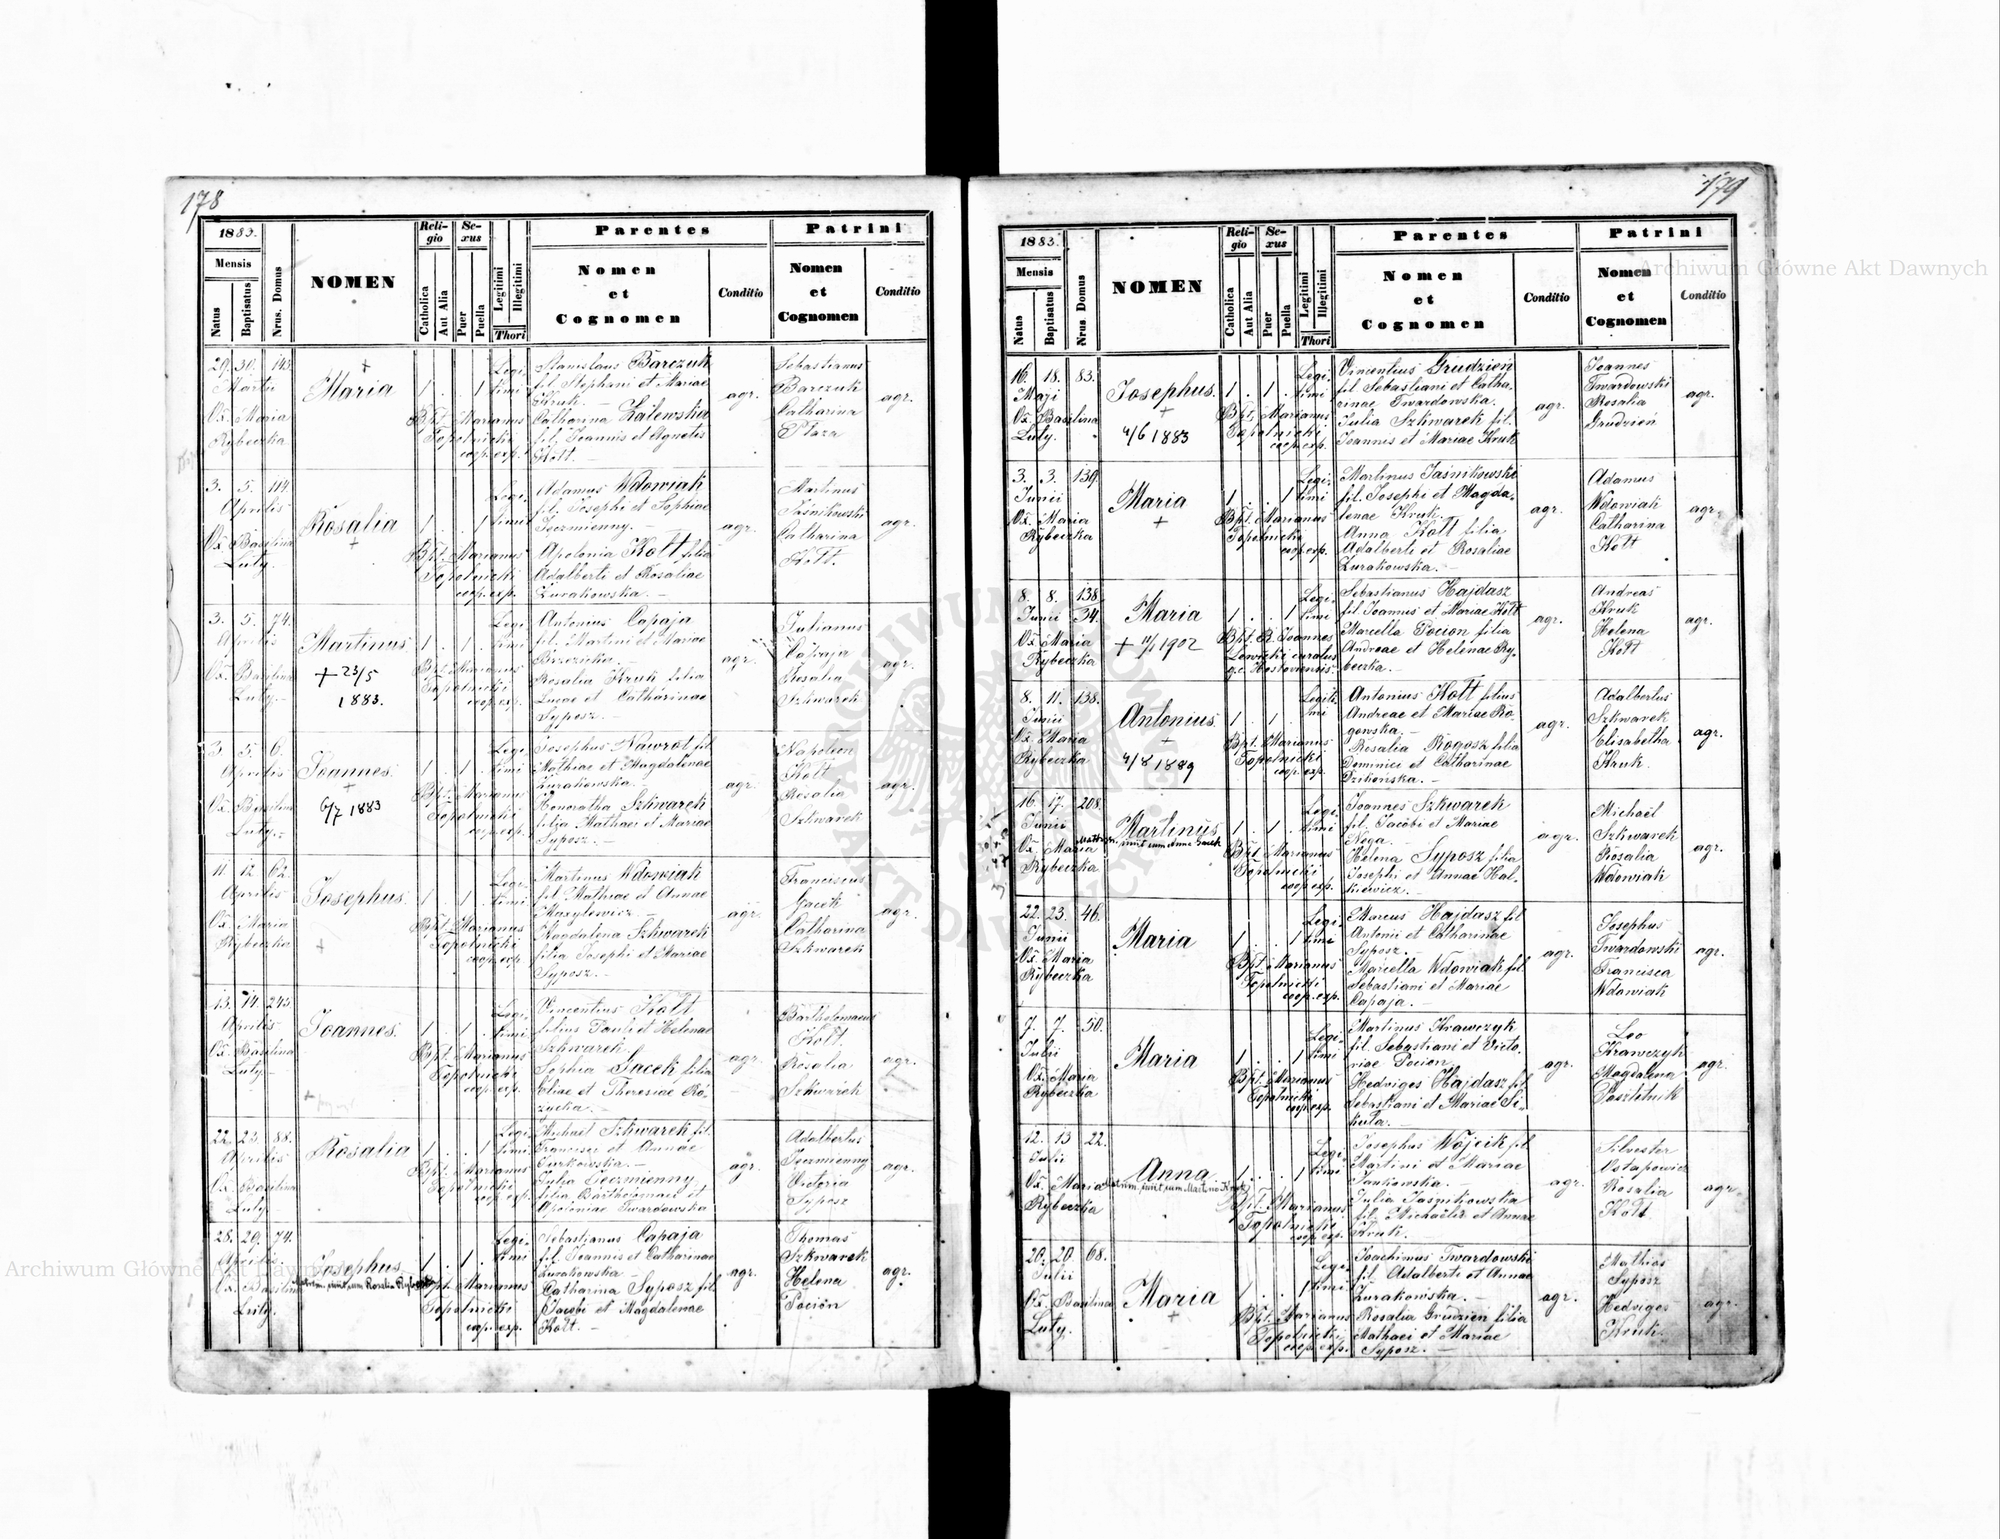 178
1883.
Mensis
Natus
Baptisatus
Nrus. Domus
NOMEN
Reli-
gio
Catholica
Aut Alia
Se-
xus
Puer
Puella
Legitimi
Illegitimi
Thori
Parentes
Nomen
et
Cognomen
Conditio
Patrini
Nomen
et
Cognomen
Conditio
29. 30. 143.
Martii
Ox. Maria
Rybeczka
Maria
1 . . 1
Legi-
timi
Bpt. Marianus
Topolnicki
coop. exp.
Stanislaus Barczuk
fil. Stephani et Mariae
Kruk. —
Catharina Zalewska
fil. Joannis et Agnetis
Kott. —
agr.
Sebastianus
Barczuk
Catharina
agr.
3. 5. 114.
Aprilis
Ox. Basilina
Luty.
Rosalia
1 . . 1
Legi-
timi
Bpt. Marianus
Topolnicki
coop. exp.
Adamus Wdowiak
fil. Josephi et Sophiae
Apolonia Kott filia
Adalberti et Rosaliae
Żurakowska. —
agr.
Martinus
Jaśnikowski
Catharina
Kott.
agr.
3. 5. 74.
Aprilis
Ox. Basilina
Luty. —
Martinus
+ 23/5
1883.
1 . 1 .
Legi-
timi
Bpt. Marianus
Topolnicki
coop. exp.
Antonius Capaja
fil. Martini et Mariae
Rosalia Kruk filia
Lucae et Catharinae
Syposz. —
agr.
Julianus
Capaja
Rosalia
Szkwarek
agr.
3. 5. 6.
Aprilis
Ox. Basilina
Luty. —
Joannes.
6/7 1883
1 . 1 .
Legi-
timi
Bpt. Marianus
Topolnicki
coop. exp.
Josephus Nawrot fil.
Mathiae et Magdalenae
Żurakowska. —
Honoratha Szkwarek
filia Mathaei et Mariae
Syposz. —
agr.
Napoleon
Kott
Rosalia
Szkwarek
agr.
11. 12. 62.
Aprilis
Ox. Maria
Rybeczka
Josephus.
1 . 1 .
Legi-
timi
Bpt. Marianus
Topolnicki
coop. exp.
Martinus Wdowiak
fil. Mathiae et Annae
Maxylewicz. —
Magdalena Szkwarek
filia Josephi et Mariae
Syposz. —
agr.
Franciscus
Gacek
Catharina
Szkwarek
agr.
13. 14. 243.
Aprilis
Ox. Basilina
Luty. —
Joannes.
1 . 1 .
Legi-
timi
Bpt. Marianus
Topolnicki
coop. exp.
Vincentius Kott
filius Pauli et Helenae
Szkwarek.
Sophia Gacek filia
Eliae et Theresiae
agr.
Bartholomaeus
Kott.
Rosalia
Szkwarek
agr.
22. 23. 88.
Aprilis
Ox. Basilina
Luty.
Rosalia
1 . . 1
Legi-
timi
Bpt. Marianus
Topolnicki
coop. exp.
Michael Szkwarek fil.
Francisci et Annae
Turkowska. —
Julia Jeczmienny
filia Bartholomaei et
Apoloniae Twardowska
agr.
Adalbertus
Jeczmienny
Victoria
Syposz
agr.
28. 29. 74.
Aprilis
Ox. Basilina
Luty.
Josephus
Matrim. iniit cum Rosalia
1 . 1 .
Legi-
timi
Bpt. Marianus
Topolnicki
coop. exp.
Sebastianus Capaja
fil. Joannis et Catharinae
Żurakowska —
Catharina Syposz fil.
Jacobi et Magdalenae
Kott. —
agr.
Thomas
Szkwarek
Helena
Pocion
agr.
179
1883.
Mensis
Natus
Baptisatus
Nrus. Domus
NOMEN
Reli-
gio
Catholica
Aut Alia
Se-
xus
Puer
Puella
Legitimi
Illegitimi
Thori
Parentes
Nomen
et
Cognomen
Conditio
Patrini
Nomen
et
Cognomen
Conditio
16. 18. 83.
Maji
Ox. Basilina
Luty.
Josephus.
4/6 1883
1 . 1 .
Legi-
timi
Bpt. Marianus
Topolnicki
coop. exp.
Vincentius Grudzień
fil. Sebastiani et Catha-
rinae Twardowska.
Julia Szkwarek fil.
Joannis et Mariae Kruk
agr.
Joannes
Twardowski
Rosalia
Grudzień
agr.
3. 3. 139.
Junii
Ox. Maria
Rybeczka
Maria
+
1 . . 1
Legi-
timi
Bpt. Marianus
Topolnicki
coop. exp.
Martinus Jaśnikowski
fil. Josephi et Magda-
lenae Kruk. —
Anna Kott filia
Adalberti et Rosaliae
Żurakowska. —
agr.
Adamus
Wdowiak
Catharina
Kott
agr.
8. 8. 138
Junii 34.
Ox. Maria
Rybeczka
Maria
1902
1 . . 1
Legi-
timi
Bpt. R. Joannes
Lewicki curatus
g.c. Hostoviensis
Sebastianus Hajdasz
fil. Joannis et Mariae Kott
Marcella Pocion filia
Andreae et Helenae Ry-
beczka. —
agr.
Andreas
Kruk
Helena
Kott
agr.
8. 11. 138.
Junii
Ox. Maria
Rybeczka
Antonius.
+
4/8 1889
1 . 1 .
Legiti-
mi
Bpt. Marianus
Topolnicki
coop. exp.
Antonius Kott filius
Andreae et Mariae Ro-
gowska. —
Rosalia Rogosz filia
Dominici et Catharinae
Dzikońska. —
agr.
Adalbertus
Szkwarek
Elisabetha
Kruk.
agr.
16. 17. 208.
Junii
Ox. Maria
Rybeczka
Martinus
Matrim. iniit cum Anna Gacek
1 . 1 .
Legi-
timi
Bpt. Marianus
Topolnicki
coop. exp.
Joannes Szkwarek
fil. Jacobi et Mariae
Noga. —
Helena Syposz filia
Josephi et Annae Hal-
kiewicz. —
agr.
Michaël
Szkwarek
Rosalia
Wdowiak
agr.
22. 23. 46.
Junii
Ox. Maria
Rybeczka
Maria
1 . . 1
Legi-
timi
Bpt. Marianus
Topolnicki
coop. exp.
Marcus Hajdasz fil.
Antonii et Catharinae
Syposz. —
Marcella Wdowiak fil.
Sebastiani et Mariae
Capaja. —
agr.
Josephus
Twardowski
Francisca
Wdowiak
agr.
7. 7. 50.
Julii
Ox. Maria
Rybeczka
Maria
1 . . 1
Legi-
timi
Bpt. Marianus
Topolnicki
coop. exp.
Martinus Krawczyk
fil. Sebastiani et Victo-
riae Pocion
Hedviges Hajdasz fil.
Sebastiani et Mariae Si-
kuta. —
agr.
Leo
Krawczyk
Magdalena
agr.
12. 13. 22.
Julii
Ox. Maria
Rybeczka
Anna
Matrim. iniit cum Martino Kruk
1 . . 1
Legi-
timi
Bpt. Marianus
Topolnicki
coop. exp.
Josephus Wójcik fil.
Martini et Mariae
Jankowska. —
Julia Jaśnikowska
fil. Michaëlis et Annae
Kruk. —
agr.
Silvester
Ostapowicz
Rosalia
Kott
agr.
20. 20. 68.
Julii
Ox. Basilina
Luty.
Maria
+
1 . . 1
Legi-
timi
Bpt. Marianus
Topolnicki
coop. exp.
Joachimus Twardowski
fil. Adalberti et Annae
Żurakowska. —
Rosalia Grudzien filia
Mathaei et Mariae
Syposz. —
agr.
Mathias
Syposz
Hedviges
Kruk.
agr.
Archiwum Główne Akt Dawnych
Archiwum Główne Akt Dawnych